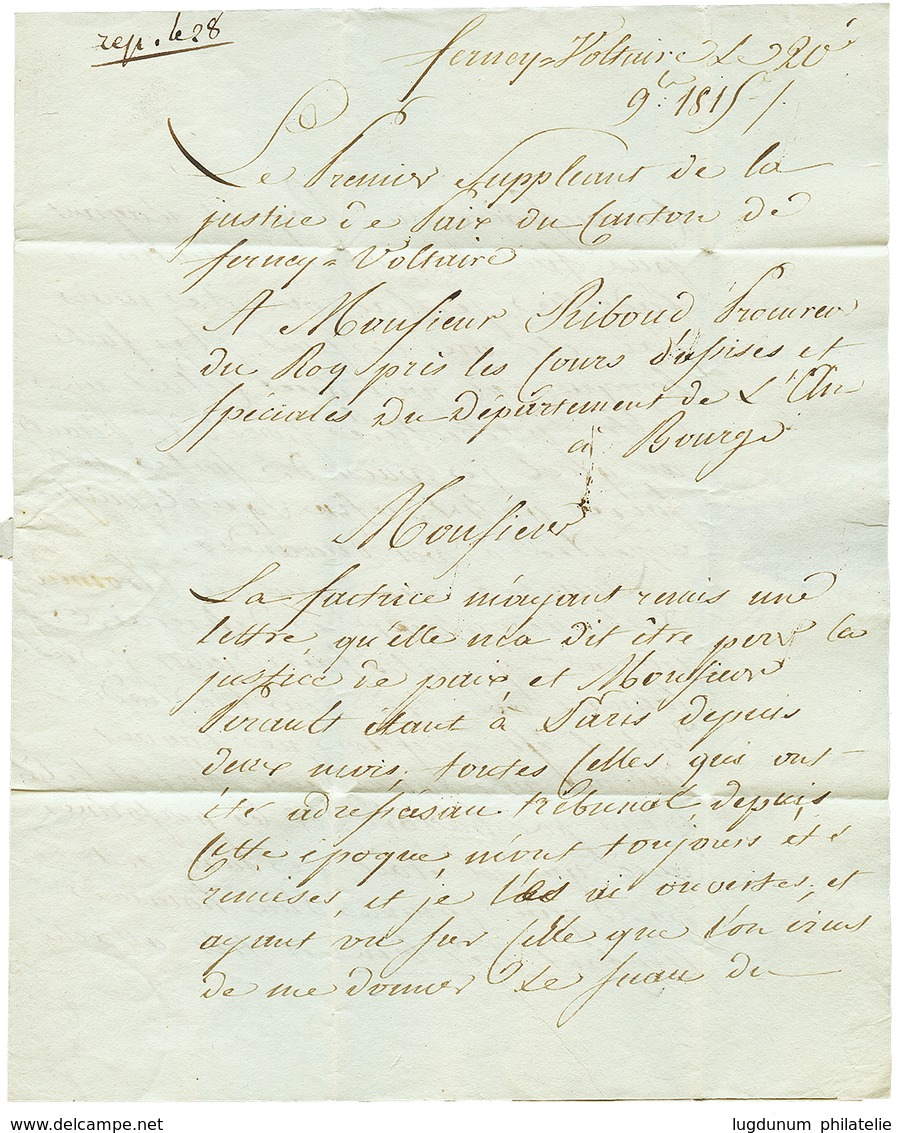 rep. le 28
ferney=Voltaire Le 20e
9bre 1815 /.
Le Premier Suppléant de la
justice de Paix du Canton de
ferney=Voltaire
A Monsieur Riboud Procureur
du Roy près les Cours d'assises et
spéciales Du Département de L'Ain
à Bourg
Monsieur
La factrice m'ayant remis une
lettre, qu'elle m'a dit être pour la
justice de paix et Monsieur
Perault étant à Paris depuis
deux mois, toutes Celles qui ont
été adressées au tribunal, depuis
Cette époque, m'ont toujours été
remises, et je les ai ouvertes, et
ayant vu sur Celle que l'on vient
de me donner Le sceau du
www.delcampe.net
lugdunum philatelie